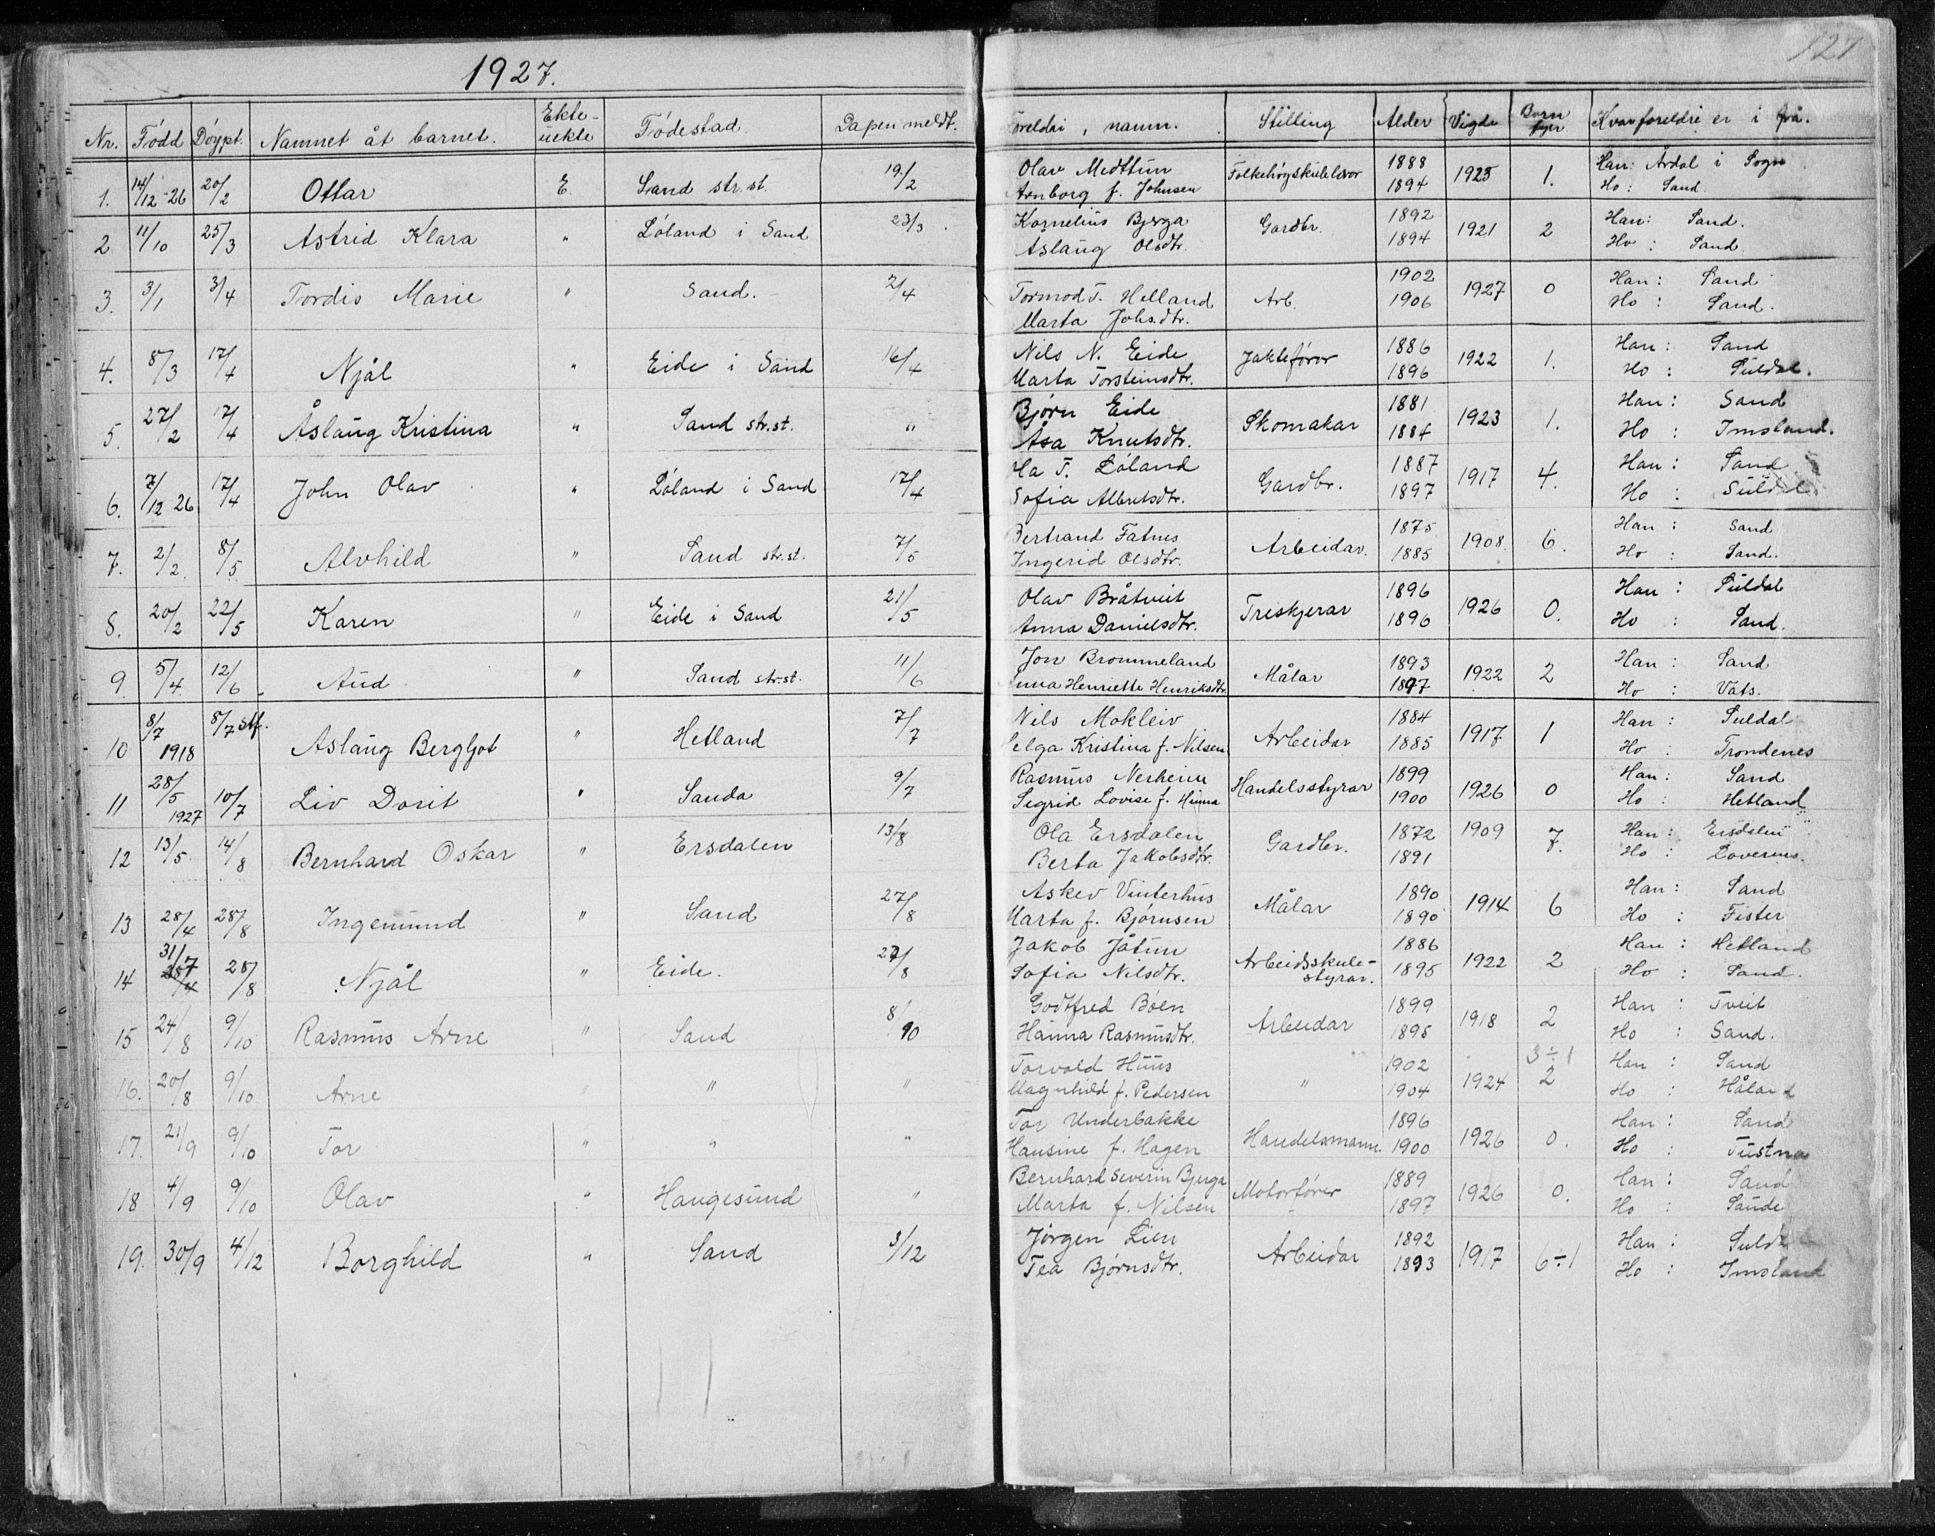 127
1927.
Nr. Fødd Døypt. Namnet åt barnet. Ekte- uekte Fødestad. Dapen meldt. Foreldri, namn. Stilling Alder Vigde Born fyrr Kvar foreldri er i frå.
1. 14/12-26 20/2 Ottar E. Sand str.st. 19/2 Olav Medttun Folkehøgskulelærar 1888 1925 1. Han: Årdal i Sogn
Arnborg f. Johnsen 1894 Ho: Sand.
2 11/10 25/3 Astrid Klara " Løland i Sand 23/3. Kornelius Bjerga Gardbr. 1892 1921 2 Han: Sand.
Aslaug Olsdtr. 1894 Ho: Sand
3. 3/1 3/4 Tordis Marie " Sand. 2/4 Tormod T. Helland Arb. 1902 1927 0 Han: Sand
Marta Johs.dtr. 1906 Ho: Sand.
4. 8/3 17/4 Njål " Eide i Sand 16/4 Nils N. Eide Jakteførar 1886 1922 1. Han: Sand
Marta Torsteinsdtr. 1896 Ho: Suldal.
5. 27/2 17/4 Åslaug Kristina " Sand str.st. " Bjørn Eide Skomakar 1881 1923 1. Han: Sand
Åsa Knutsdtr. 1884 Ho: Imsland.
6. 7/12 26 17/4 John Olav " Løland i Sand 17/4 Ola T. Løland Gardbr. 1887 1917 4. Han: Sand
Sofia Albretsdtr. 1897 Ho: Suldal
7. 2/2. 8/5 Alvhild " Sand str.st. 7/5 Bertrand Fatnes Arbeidar. 1875 1908. 6. Han: Sand
Ingerid Olsdtr. 1885 Ho: Sand.
8. 20/2 22/5 Karen " Eide i Sand 21/5 Olav Bråtveit Treskjerar 1896 1926 0. Han: Suldal
Anna Danielsdtr. 1896 Ho: Sand.
9. 5/4. 12/6 Aud " Sand str.st. 11/6 Jon Brommeland Målar 1893 1922 2 Han: Sand
Anna Henriette Henriksdtr. 1897 Ho: Vats.
10 8/7 1918 8/7 stf. Aslaug Bergljot " Hetland 7/7 Nils Mokleiv Arbeidar 1884 1917 1 Han: Suldal
Helga Kristina f. Nilsen 1885 Ho: Trondenes
11 28/5 1927 10/7 Liv Dorit " Sanda 9/7 Rasmus Nerheim Handelsstyrar 1899 1926 0 Han: Sand
Sigrid Lovise f. Hinna 1900 Ho: Hetland
12 13/5. 14/8 Bernhard Oskar " Ersdalen 13/8 Ola Ersdalen Gardbr. 1872 1909 7. Han: Ersdalen
Berta Jakobsdtr. 1891 Ho:
13 28/4 28/8 Ingemund " Sand 27/8 Askev Vinterhus Målar 1890 1914 6 Han: Sand
Marta f. Bjørnsen 1890 Ho: Fister
14 31/7 28/8 Njål " Eide. 27/8 Jakob Jåtun Arbeidsskule- styrar. 1886 1922 2 Han: Hetland
Sofia Nilsdtr. 1895 Ho: Sand.
15 24/8 9/10 Rasmus Arne " Sand 8/10 Godtfred Bøen Arbeidar 1899 1918 2 Han: Tveit
Hanna Rasmusdtr. 1895 Ho: Sand.
16. 20/8 9/10 Arne " " " Torvald Huus " 1902 1924 3÷1 2 Han: Sand
Magnhild f. Pedersen 1904 Ho: Håland
17. 21/9 9/10 Tor " " " Tor Underbakke Handelsmann 1896 1926 0. Han: Sand
Hansine f. Hagen 1900 Ho: Tustna
18 4/9 9/10 Olav " Haugesund " Bernhard Severin Bjerga Motorfører 1889 1926 0. Han: Sand
Marta f. Nilsen 1897 Ho: Saude
19. 30/9 4/12 Borghild " Sand 3/12 Jørgen Lien Arbeidar 1892 1917 6÷1 Han: Suldal
Tea Bjørnsdtr. 1893 Ho: Imsland